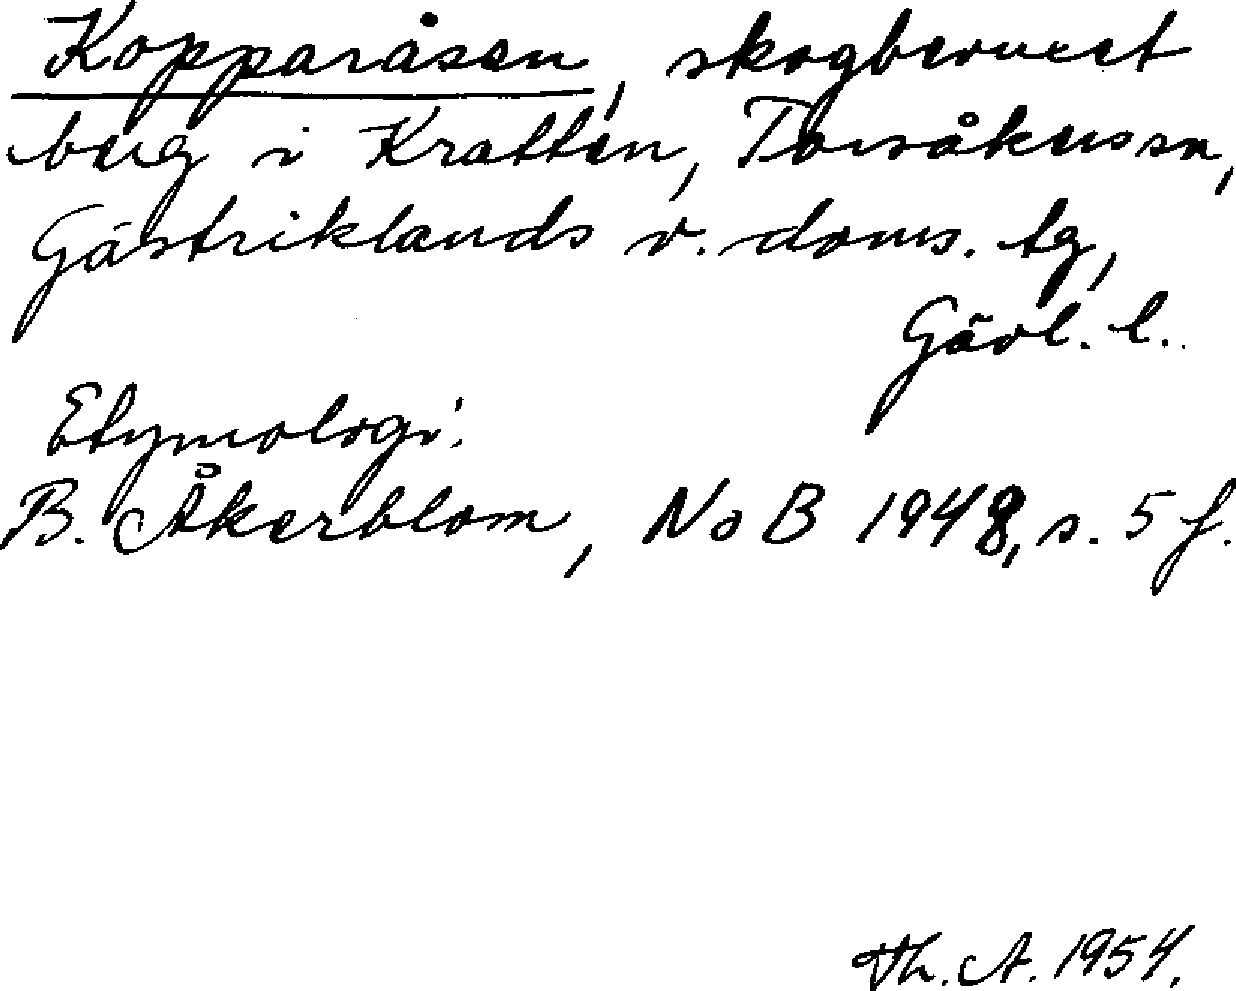 Kopparåsen, skogbevuxet
berg i Kratten, Torsåker sn,
Gästriklands v. doms. tg,
Gävl. l.
Etymologi:
B. Åkerblom, NoB 1948, s. 5 f.
Th. A. 1954.